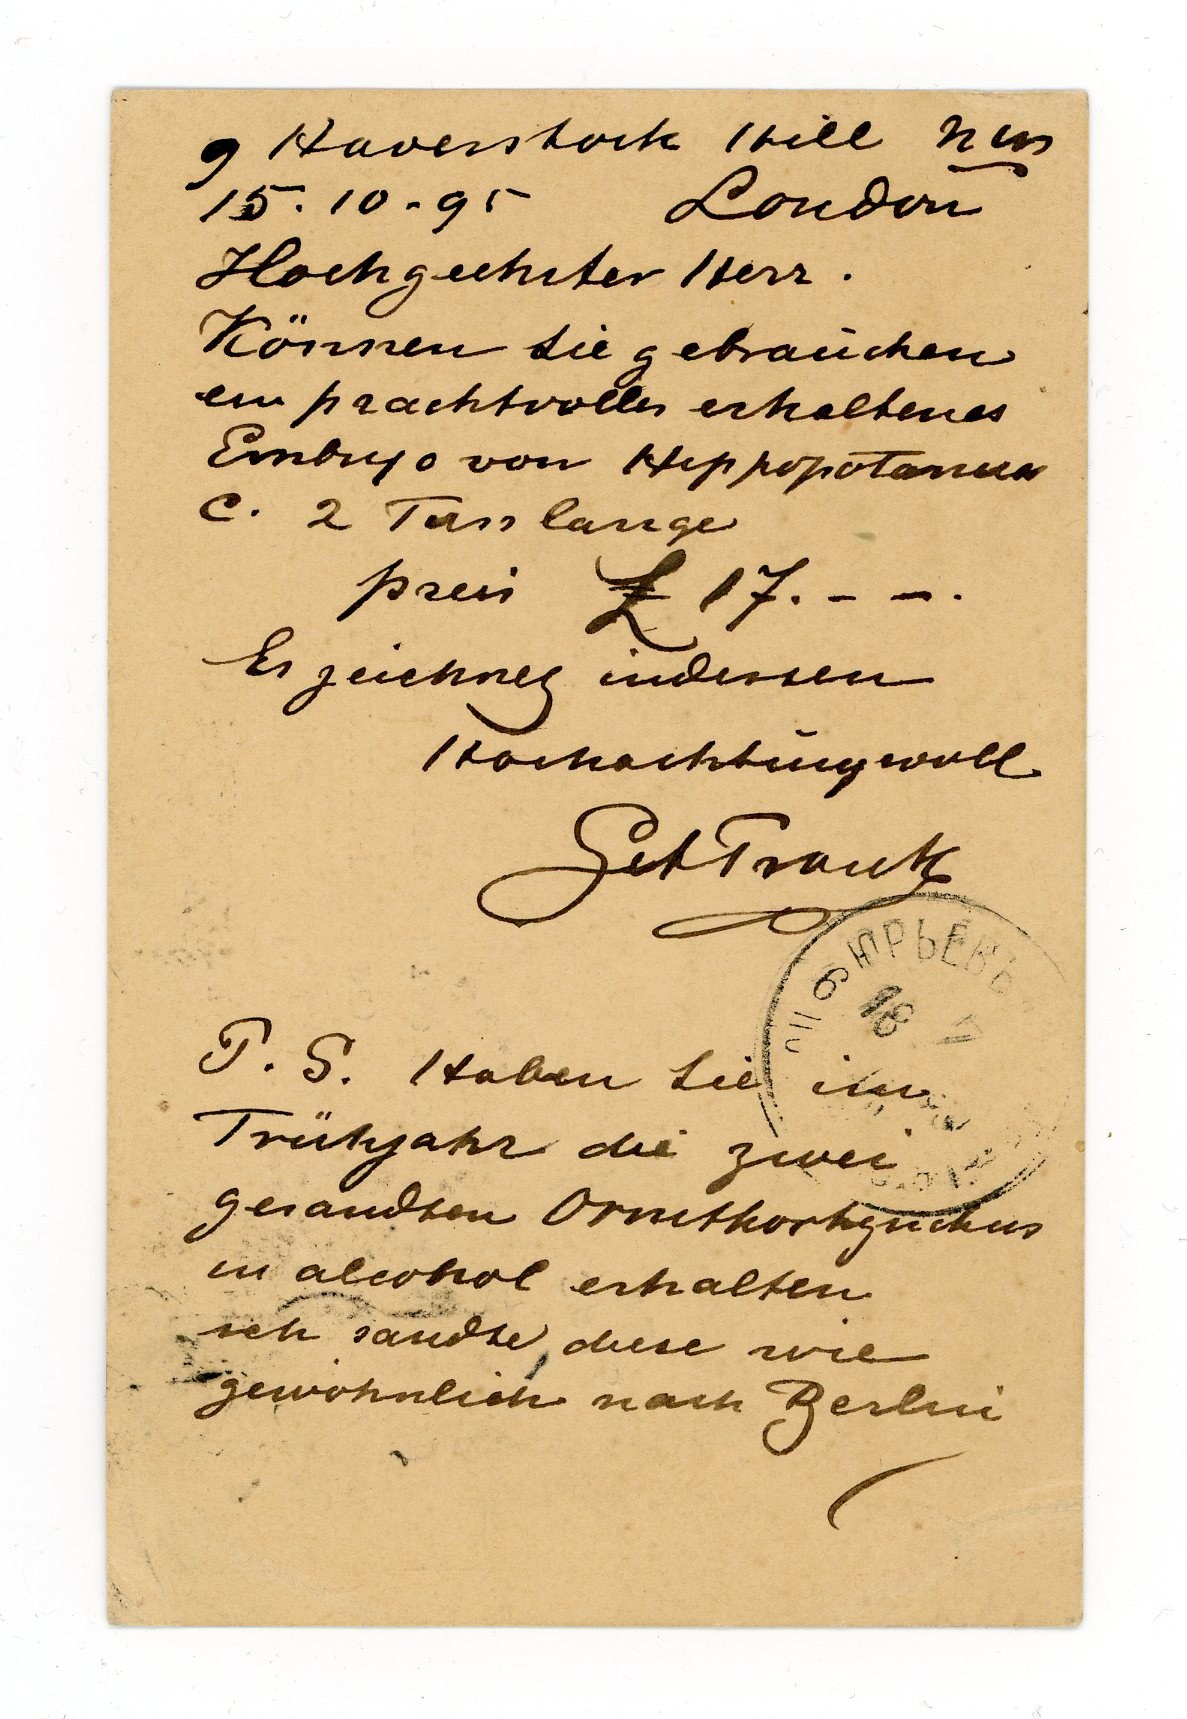 9 Haverstock Hill NW
15.10.95 London
Hochgeehrter Herr.
Können Sie gebrauchen
ein prachtvolles erhaltenes
Embryo von Hippopotamus
c. 2 Fuss lange
preis £ 17. – –.
Es zeichnet indessen
Hochachtungsvoll
P. S. Haben Sie im
Frühjahr die zwei
gesandten Ornithorhynchus
in alcohol erhalten
ich sandte diese wie
gewöhnlich nach Berlin
ЮРЬЕВЪ